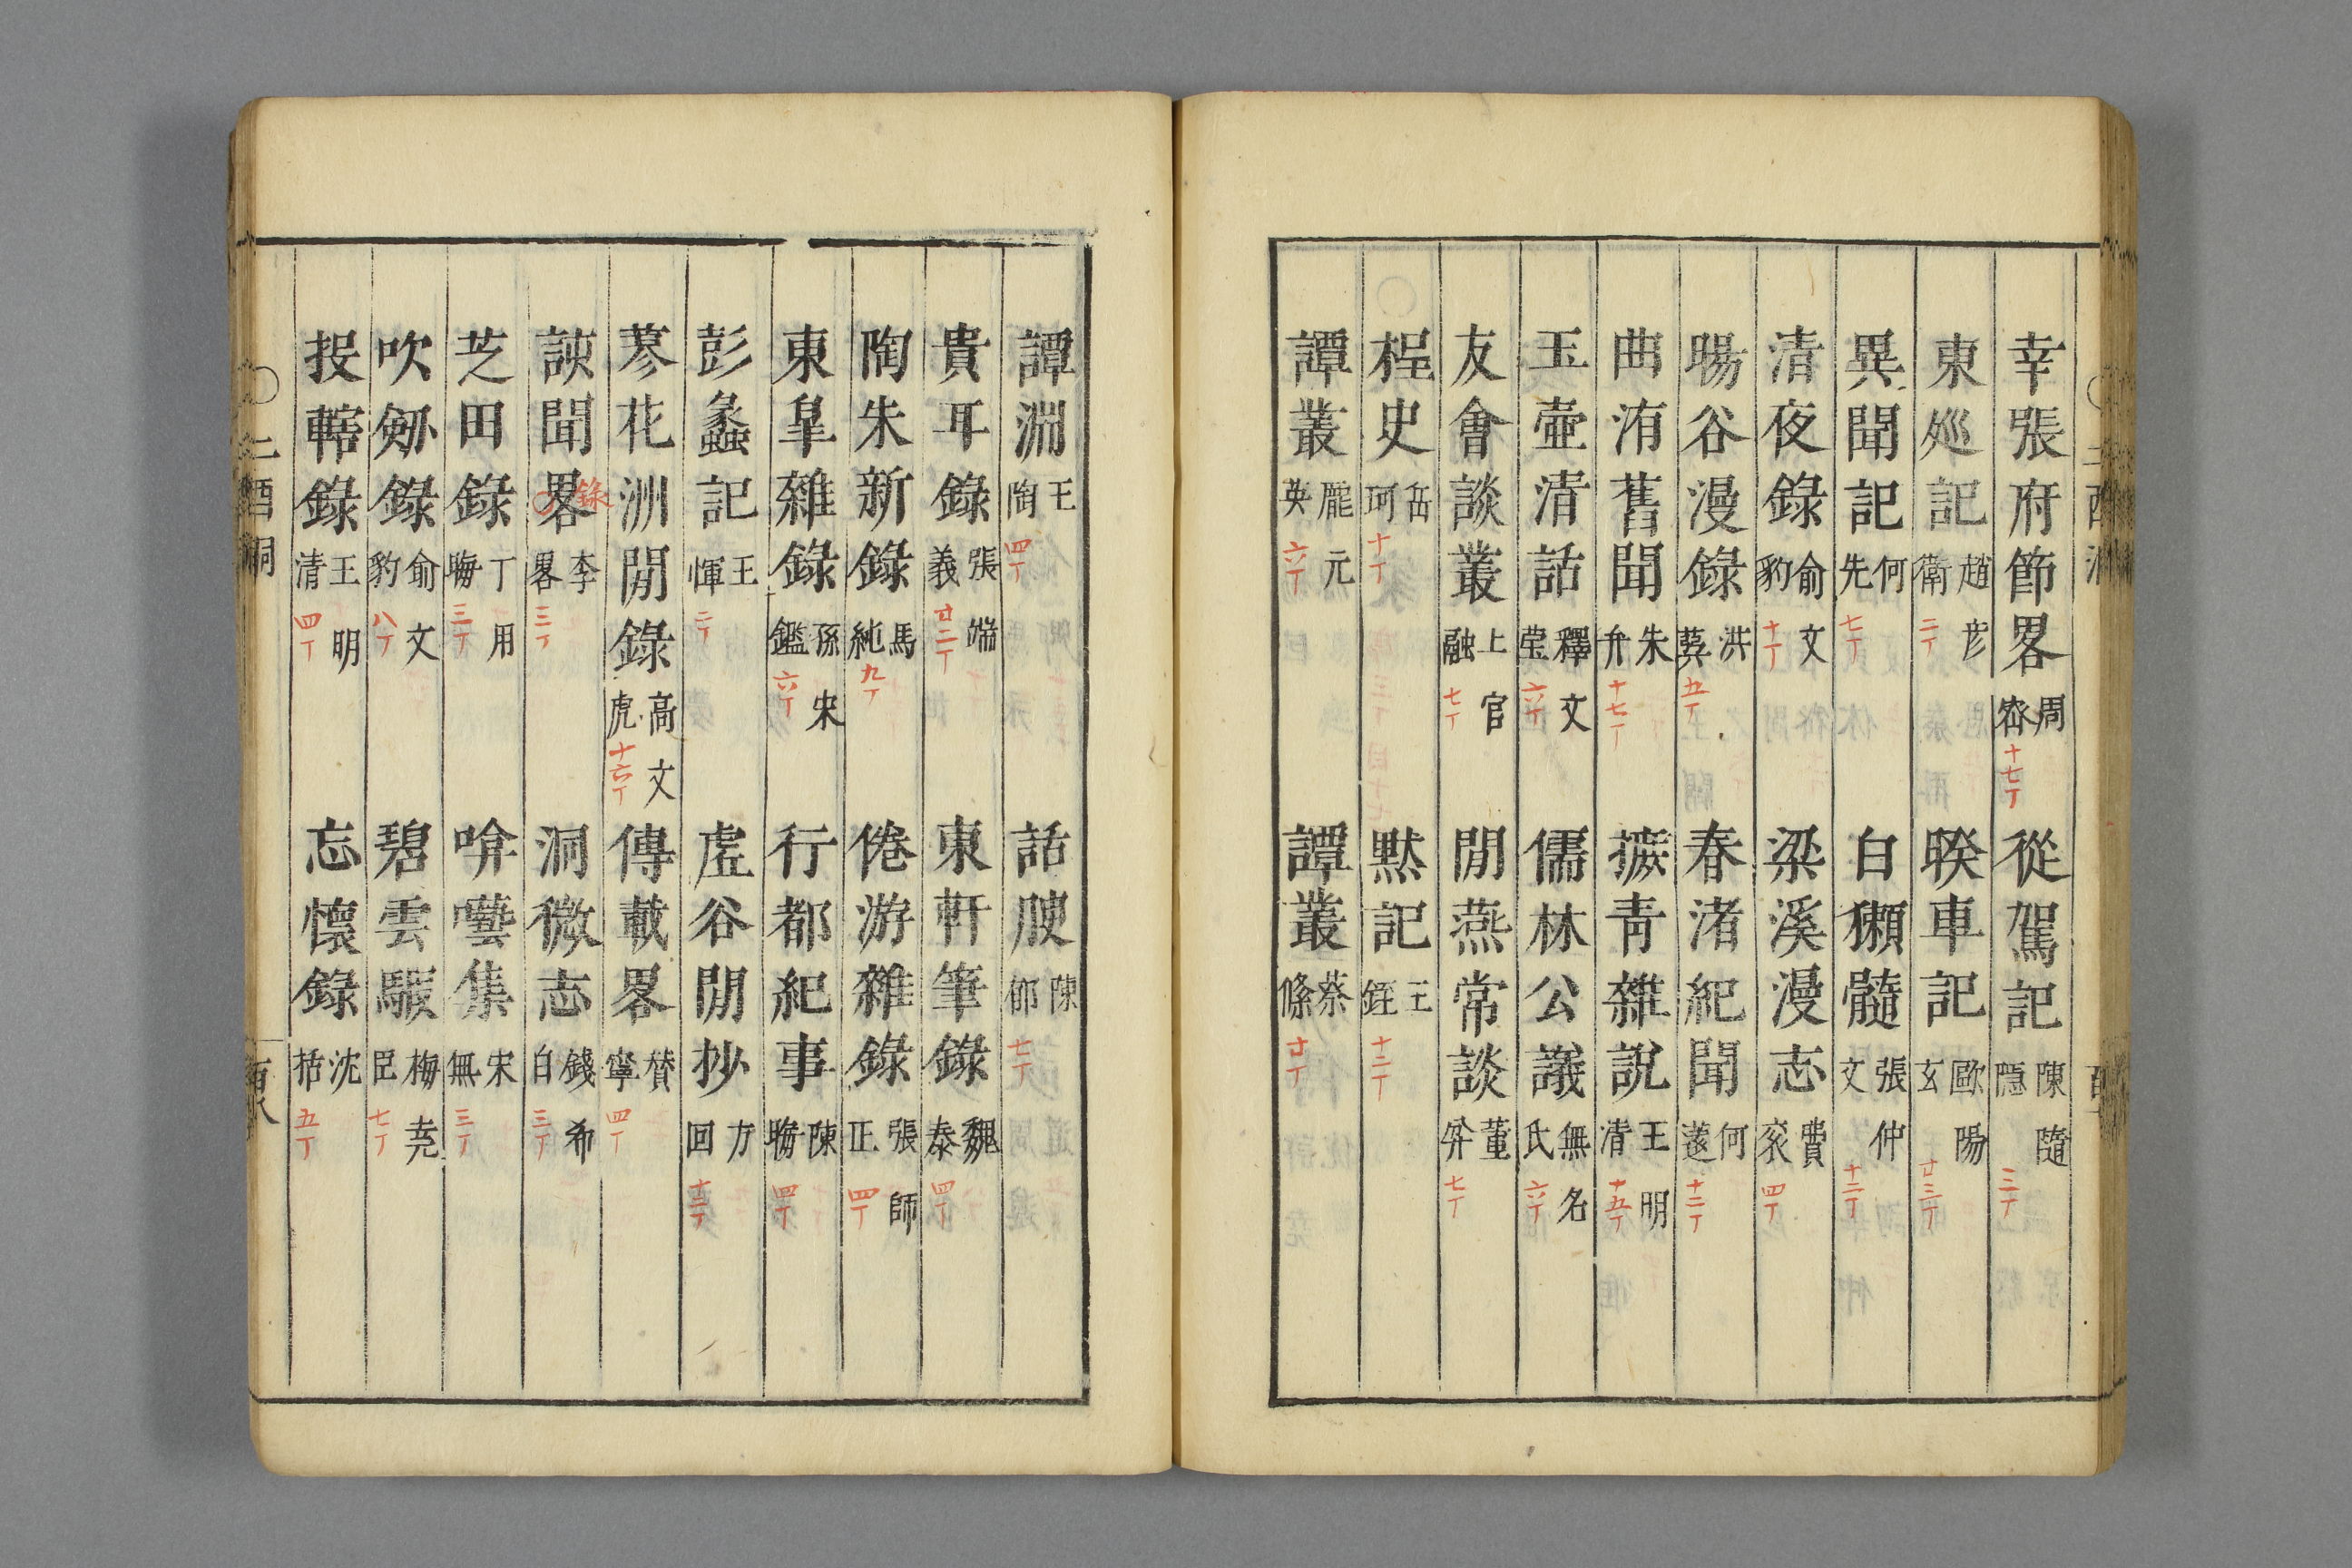 幸張府節畧 周密 十七丁 從駕記 陳隨隱 三丁
東廵記 趙彦衛 二丁 暌車記 歐陽玄 廿三丁
異聞記 何先 七丁 白獺髓 張仲文 十二丁
清夜錄 俞文豹 十丁 梁溪漫志 費衮 四丁
暘谷漫錄 洪巽 五丁 春渚紀聞 何薳 十二丁
曲洧舊聞 朱弁 十七丁 摭青雜說 王明清 十五丁
玉壷清話 釋文瑩 六丁 儒林公議 無名氏 六丁
友會談叢 上官融 七丁 閒燕常談 董弅 七丁
桯史 岳珂 十丁 默記 王銍 十二丁
譚叢 龐元英 六丁 譚叢 蔡絛 廿丁
譚淵 王陶 四丁 話腴 陳郁 七丁
貴耳錄 張端義 廿二丁 東軒筆錄 魏泰 四丁
陶朱新錄 馬純 九丁 倦游雜錄 張師正 四丁
東臯雜錄 孫宋鑑 六丁 行都紀事 陳晦 四丁
彭蠡記 王惲 二丁 虛谷閒抄 方回 十二丁
蓼花洲閒錄 高文虎 十六丁 傳載畧 賛寧 四丁
諛聞畧 錄 李畧 三丁 洞微志 錢希白 三丁
芝田錄 丁用晦 三丁 啽囈集 宋無 三丁
吹劒錄 俞文豹 八丁 碧雲騢 梅堯臣 七丁
投轄錄 王明清 四丁 忘懷錄 沈括 五丁
〇二酉洞 百八